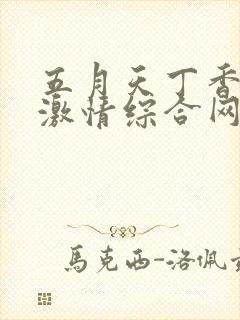 五月天丁香
激情综合网
馬克西-洛佩